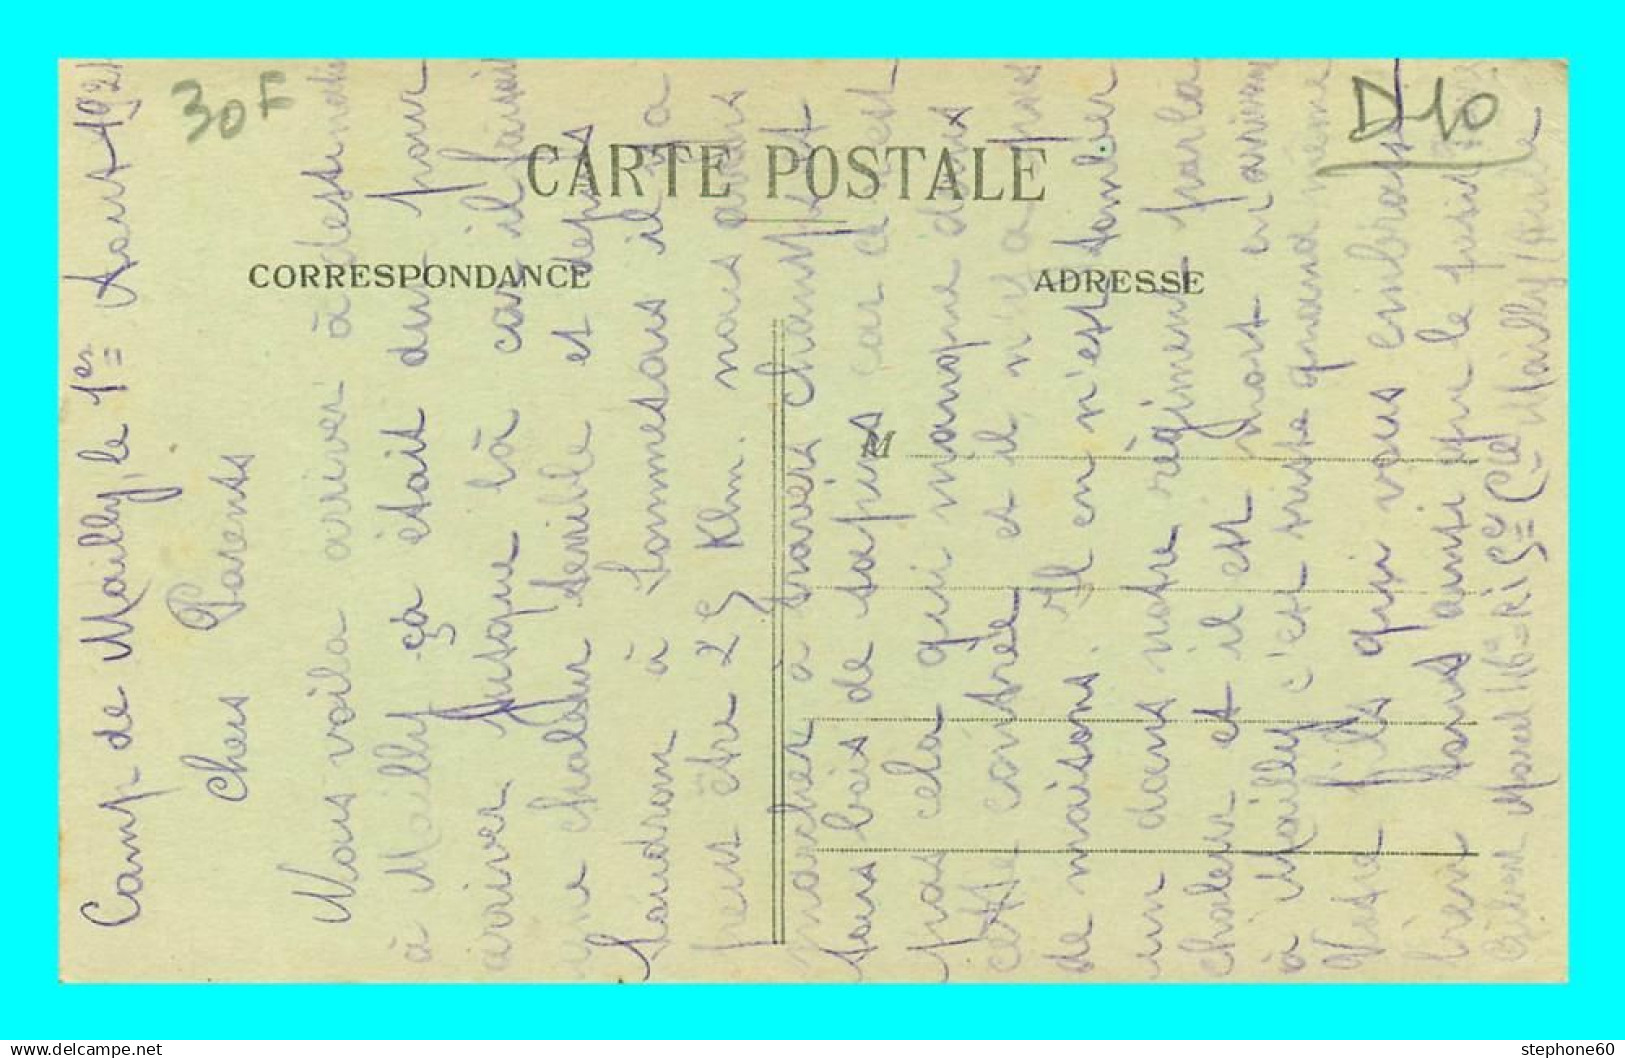 30F
D 10
CARTE POSTALE
CORRESPONDANCE
ADRESSE
M
Camp de Mailly, le 1er Aout 192
Chers Parents
Nous voila arriver à destinati
à Mailly ça était dur pour
arriver jusque là car il faisait
une chaleur terrible et depuis
à Sommesous il y a
peut être 25 Klm. nous avons
marcher à travers champs et
sous bois de sapins car ce n'est
pas cela qui manque dans
cette contrée et il n'y a pas
de maisons. Il en n'est tomber
un dans notre régiment par la
chaleur et il est mort en arrivan
à Mailly c'est triste quand même
Votre fils qui vous embrasse
bien fort ainsi que le
Marcel 16e RI 5e Cie Mailly (Aube
www.delcampe.net
stephone60